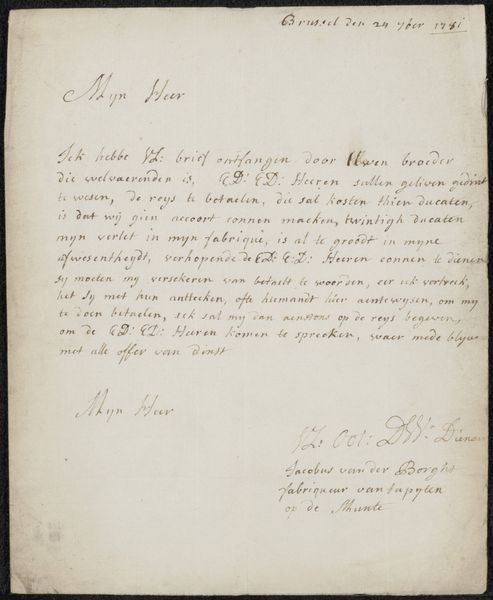 Brussel den 24 7ber 1781
Myn Heer
Ick hebbe VL: brief ontfangen door Uwen broeder
die welvaerenden is, ED: ED: Heeren sullen gelieven gedint
te wesen, de reys te betaelen, die sal kosten thien ducaten,
is dat wij gien accort connen macken, twintigh ducaten
myn verlet in myn fabrique, is al te groodt in myne
afwesentheydt, verhopende de ED: ED: Heeren connen te dienen
sy moeten my versekeren van betaelt te woorden, eer ick vertreck,
het sy met hun antteecken, ofte iemandt hier aentewysen, om my
te doen betaelen, ick sal my dan aenstons op de reys begeven,
om de ED: ED: Heeren komen te spreeken, waer mede blyve
met alle offer van dinst
Myn Heer
VL: DW: Diener
Jacobus van der Borght
fabriqueur van tapyten
op de Munte